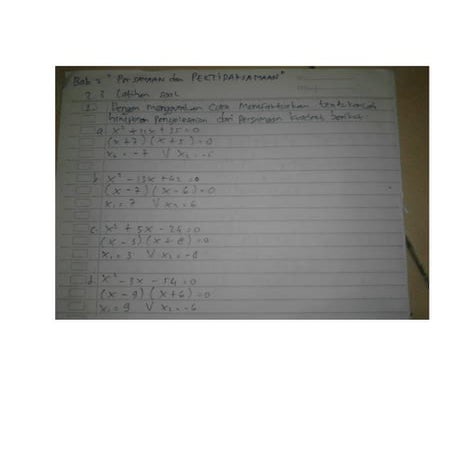 Bab 2 "PERSAMAAN dan PERTIDAKSAMAAN"
2.3 Latihan soal
1. Dengan menggunakan Cara Memfaktorkan tentukanlah
himpunan Penyelesaian dari Persamaan kuadrat berikut
a. x² + 12x + 35 = 0
(x+7)(x+5) = 0
x₁ = -7 V x₂ = -5
b. x² - 13x + 42 = 0
(x - 7)(x - 6) = 0
x₁ = 7 V x₂ = 6
c. x² + 5x - 24 = 0
(x - 3)(x + 8) = 0
x₁ = 3 V x₂ = -8
d. x² - 3x - 54 = 0
(x - 9)(x + 6) = 0
x₁ = 9 V x₂ = -6